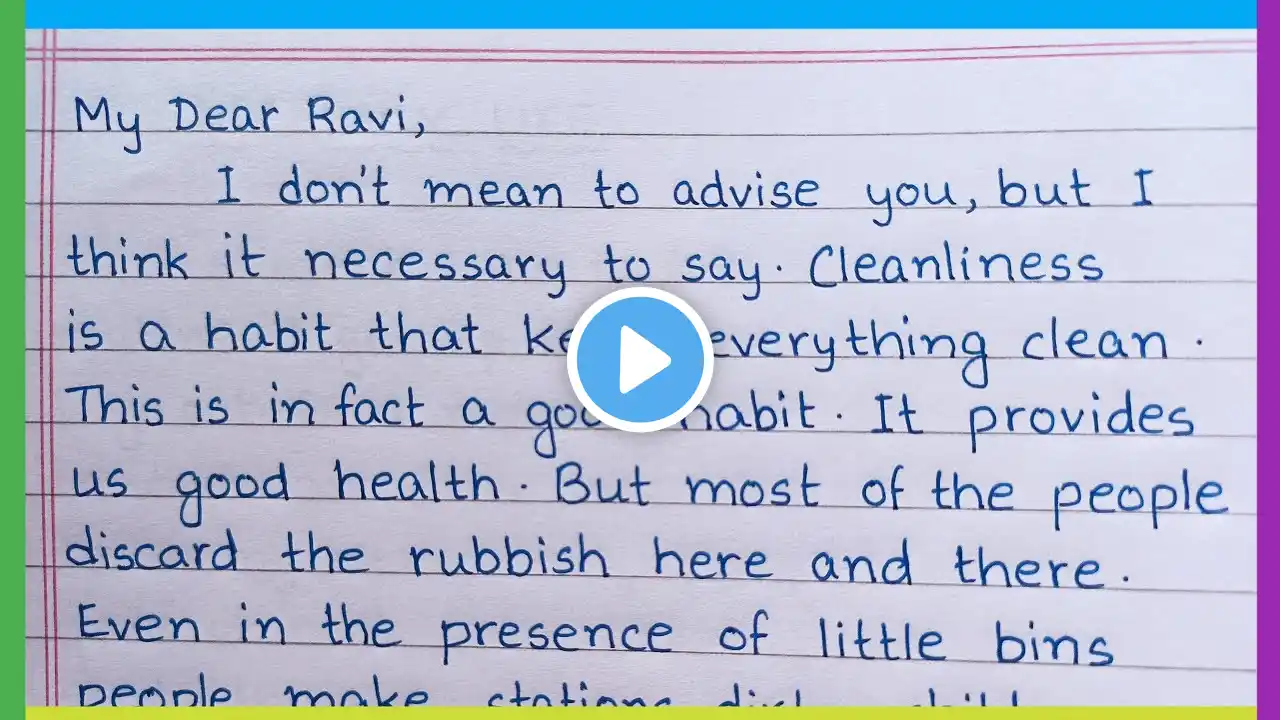 My Dear Ravi,
I don't mean to advise you, but I
think it necessary to say. Cleanliness
is a habit that everything clean.
This is in fact a habit. It provides
us good health. But most of the people
discard the rubbish here and there.
Even in the presence of little bins
people make stations